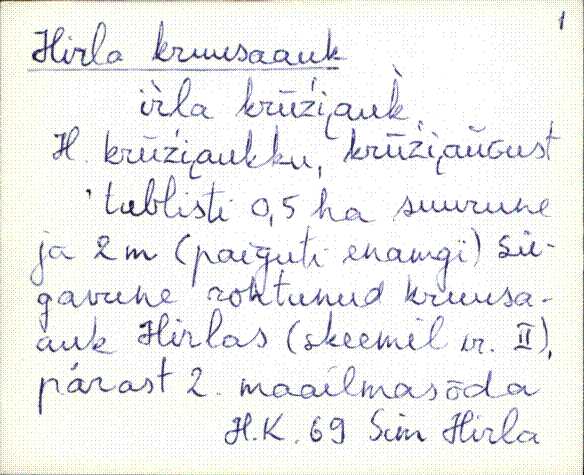 1
Hirla kruusaauk
ìrla krūźi̮auk̀.
H. krūźi̮aukku, krūźi̮aùGust
'tublisti 0,5 ha suurune
ja 2 m (paiguti enamgi) sü-
gavune rohtunud kruusa-
auk Hirlas (skeemil nr. II),
pärast 2. maailmasõda
H.K. 69 Sim Hirla